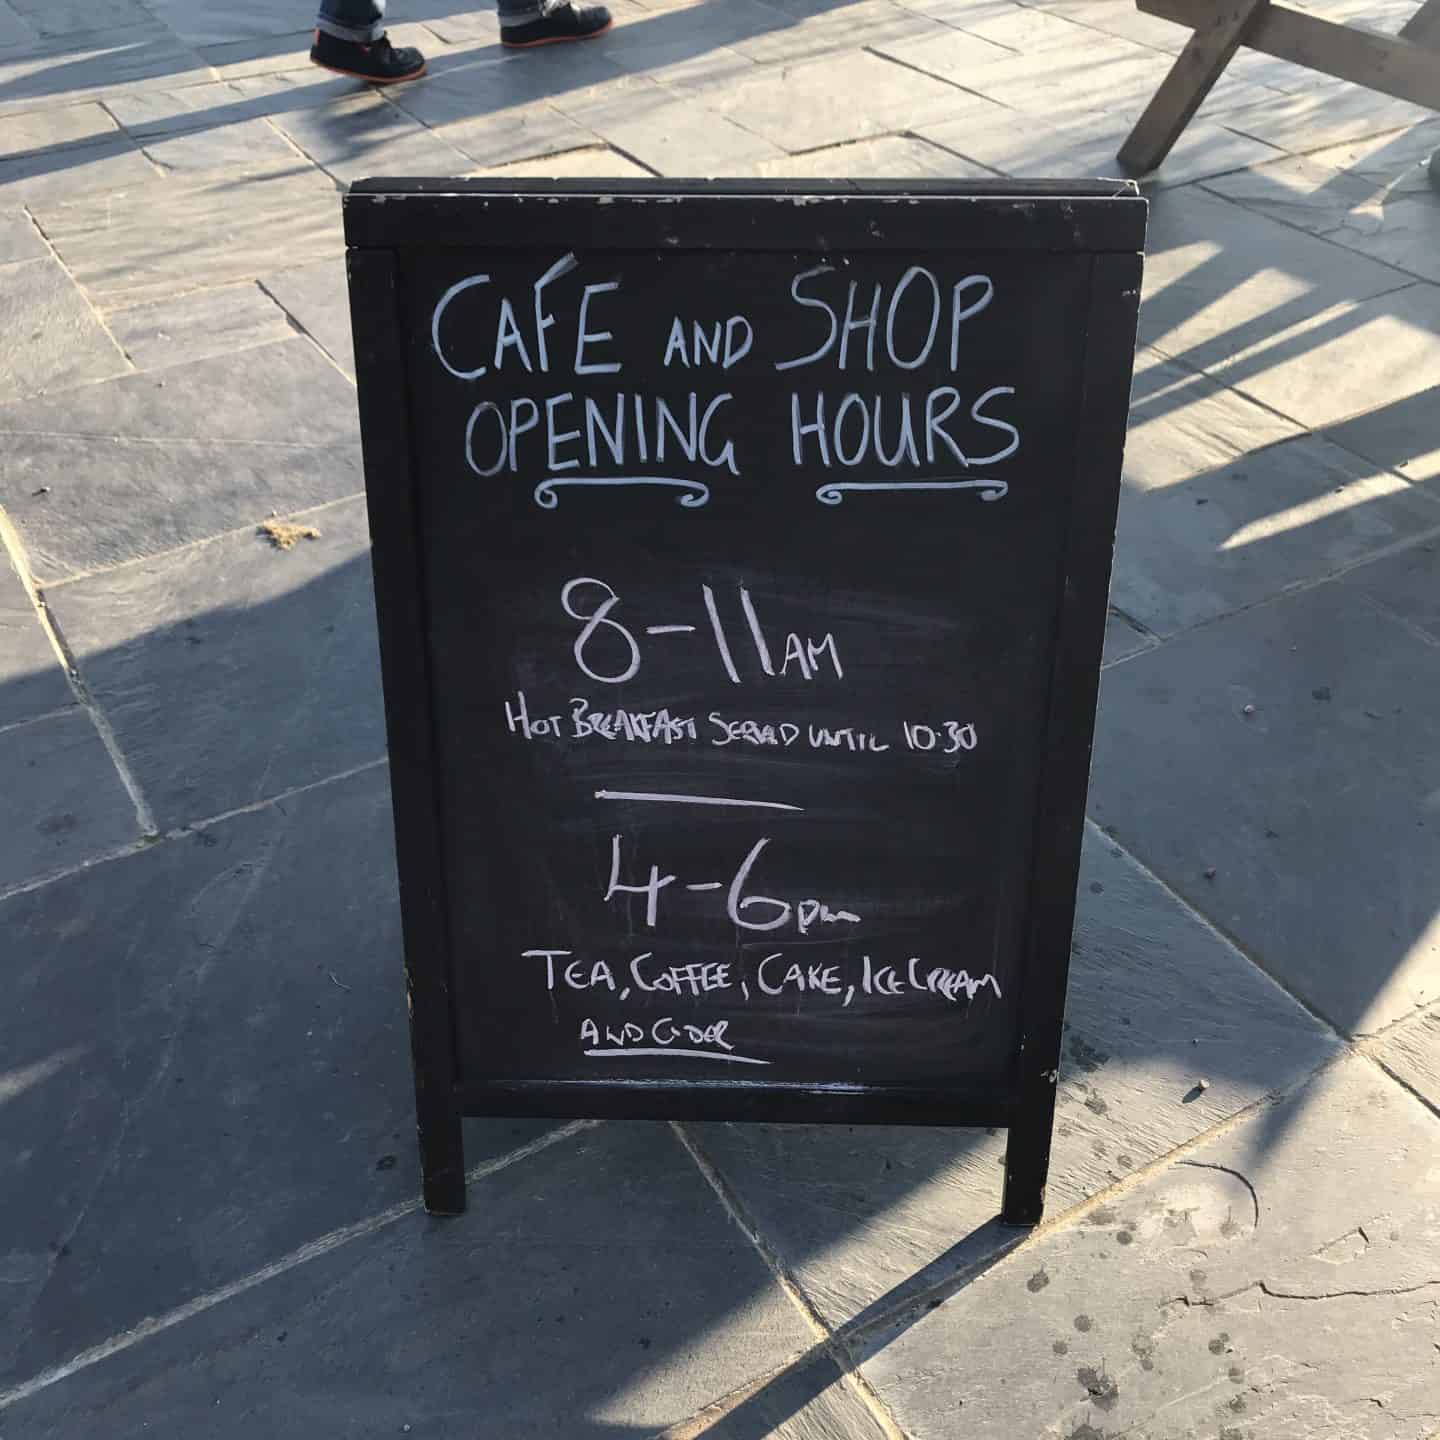 CAFÉ AND SHOP
OPENING HOURS
8-11AM
HOT BREAKFAST SERVED UNTIL 10.30
4-6pm
TEA, COFFEE, CAKE, ICE CREAM
AND CIDER